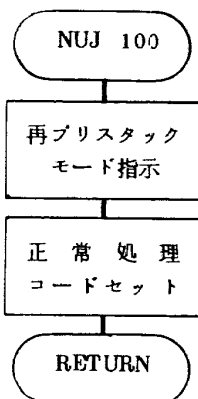 NUJ 100
再プリスタック
モード指示
正常処理
コードセット
RETURN